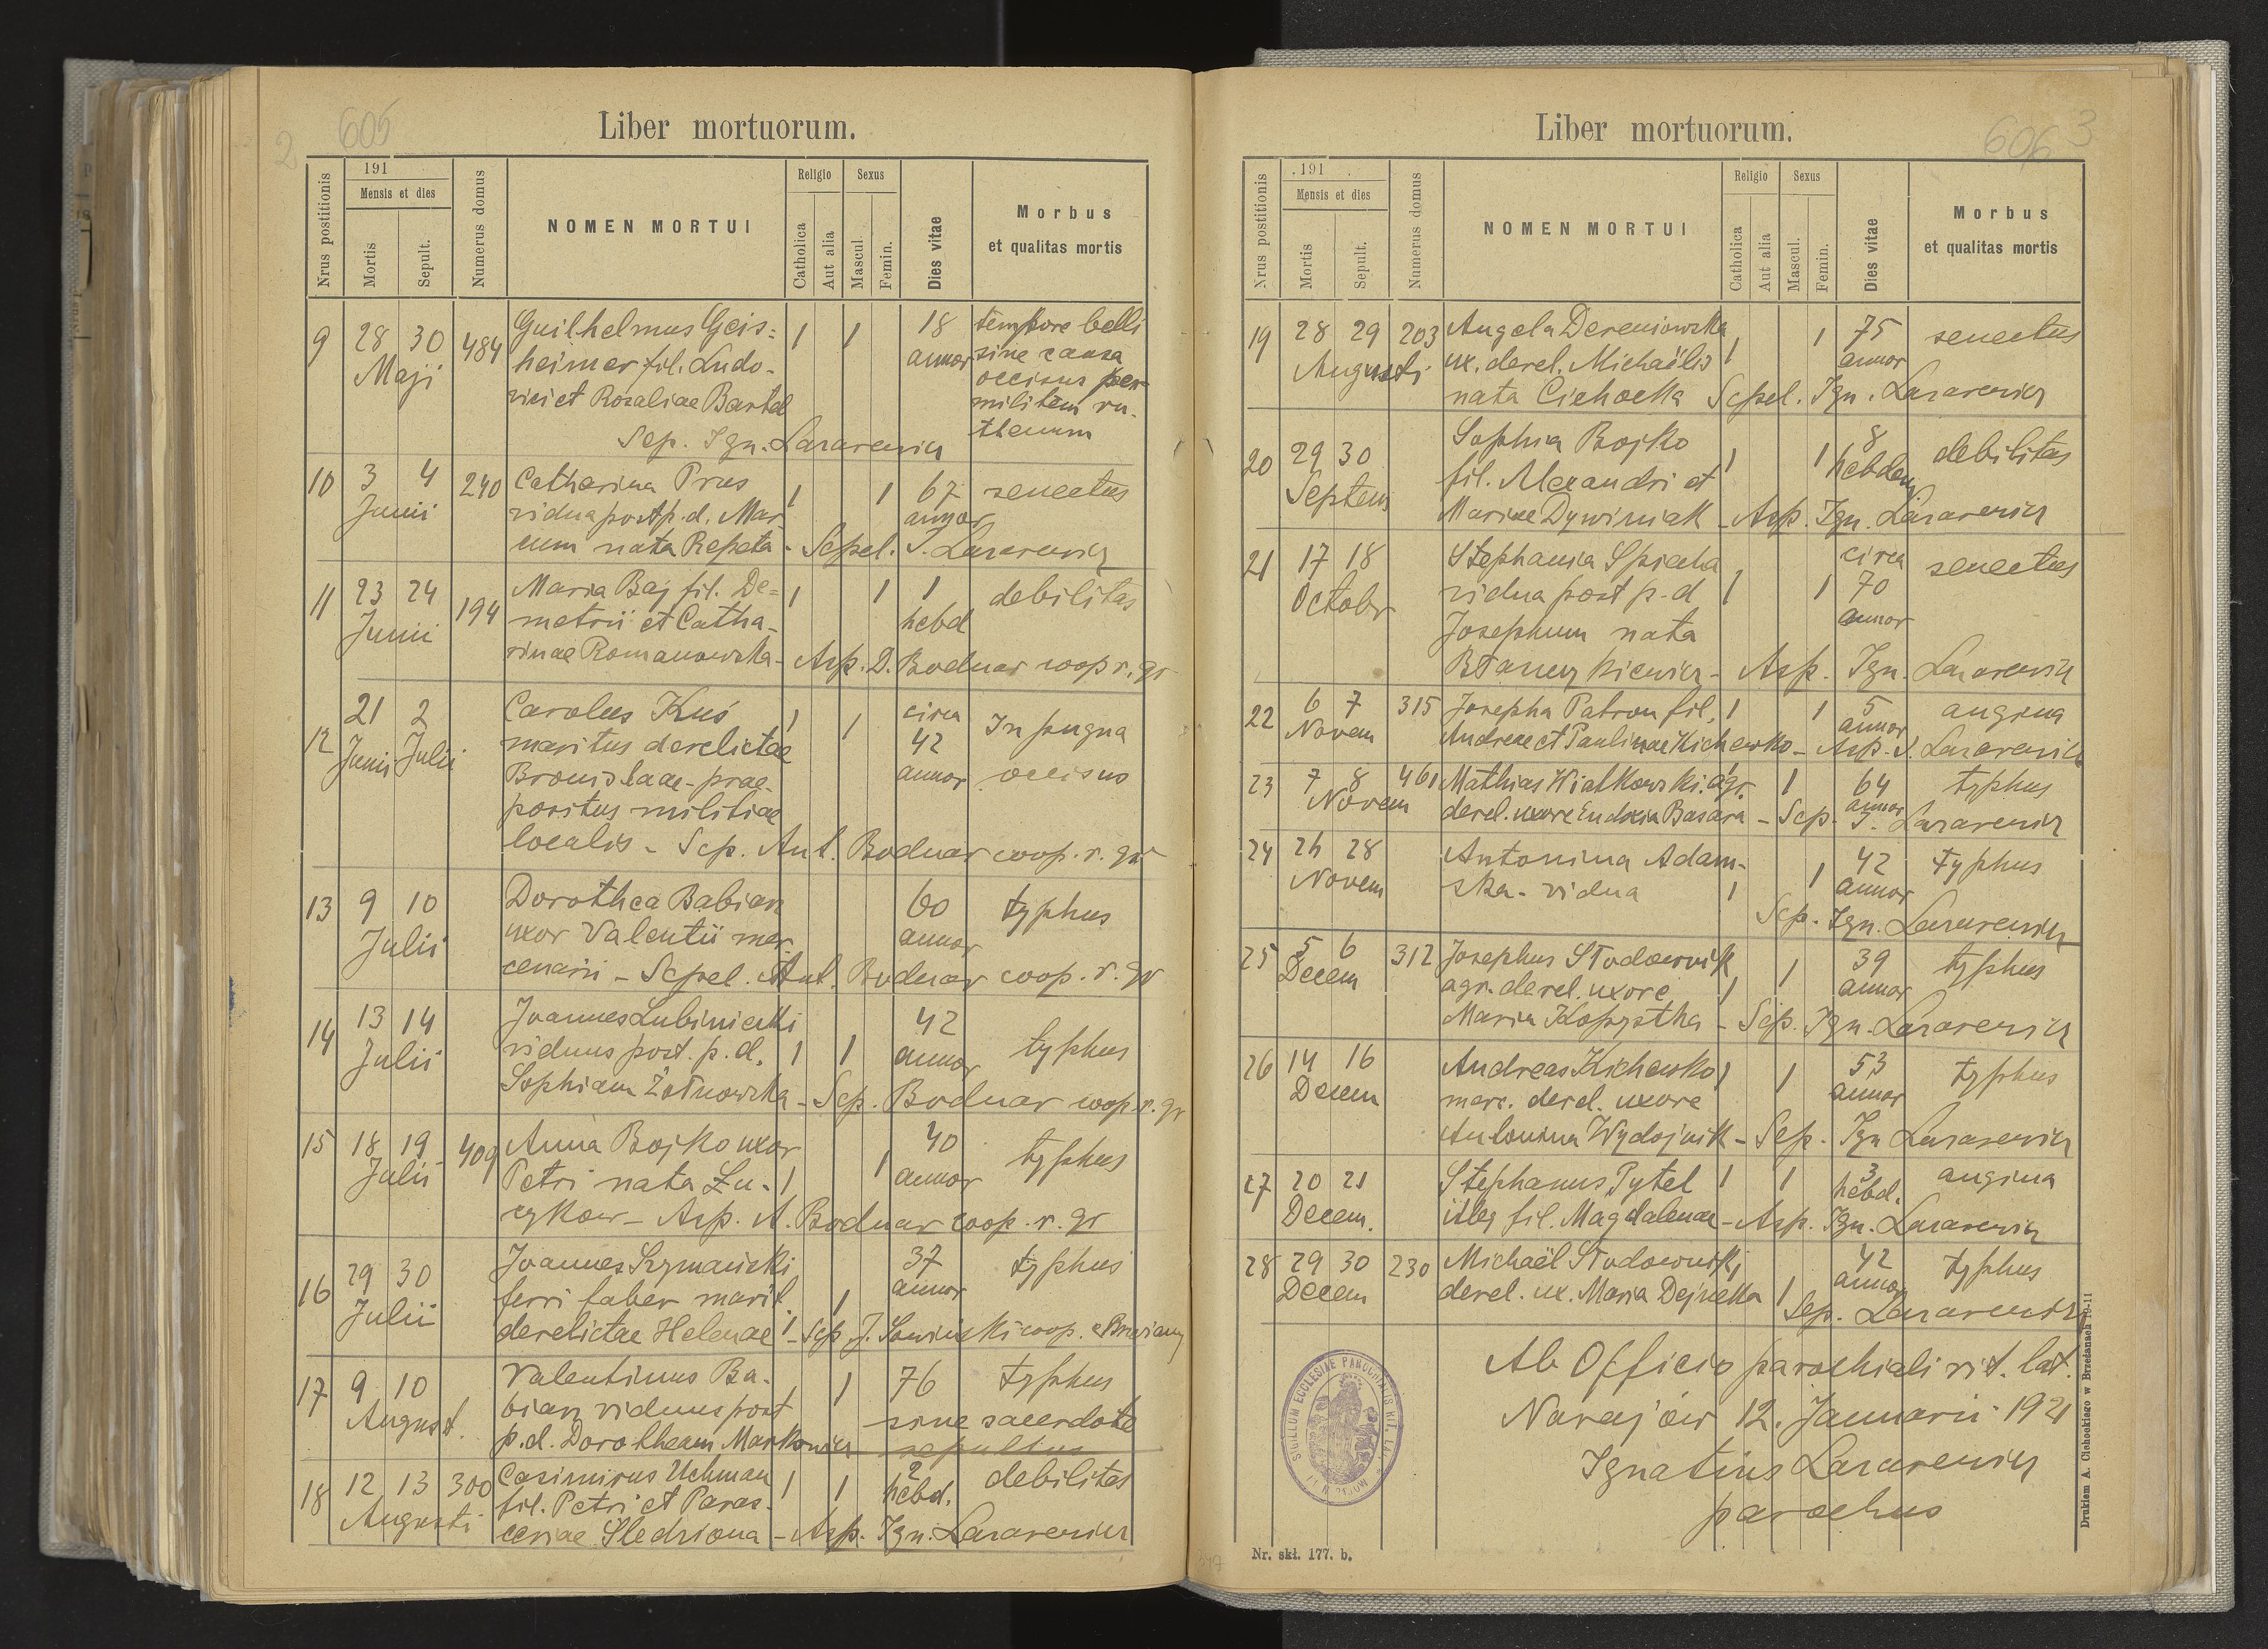 2 605
Liber mortuorum.
Nrus postitionis
191
Mensis et dies
Mortis
Sepult.
Numerus domus
NOMEN MORTUI
Religio
Catholica
Aut alia
Sexus
Mascul.
Femin.
Dies vitae
Morbus
et qualitas mortis
9 28 30 484 Guilhelmus Geis= 1 1 18 tempore belli
Maji heimer fil. Ludo- annor sine causa
vici et Rosaliae Bartel occisus per
militem ru-
Sep. Ign. Lazarewicz thenum
10 3 4 240 Catharina Prus 1 1 67 senectus
Junii vidua post p.d. Mar annor
cum nata Repeta - Sepel. I. Lazarewicz
11 23 24 194 Maria Baj fil. De= 1 1 1 debilitas
Junii metrii et Catha- hebd
rinae Romanowska - Asp. D. Bodnar coop r. gr
12 21 2 Carolus Kuś 1 1 circa In pugna
Junii Julii maritus derelictae 42 occisus
Bronislaae - prae- annor
positus militiae
localis - Sep. Ant. Bodnar coop. r. gr
13 9 10 Dorothea Babian 60 typhus
Julii uxor Valentii mer- annor
cenarii - Sepel. Ant. Bodnar coop. r. gr
14 13 14 Joannes Lubiniecki 42
Julii viduus post. p. d. 1 1 annor typhus
Sophiam Żołnowska - Sep. Bodnar coop. r. gr
15 18 19 409 Anna Bojko uxor 40
Julii Petri nata Łu- 1 1 annor typhus
cykow - Asp. A. Bodnar coop. r. gr
16 29 30 Joannes Szymański 37 typhus
Julii ferri faber marit. 1 annor
derelictae Helenae 1 - Sep J. Sowiński coop. e Brzeżany
17 9 10 Valentinus Ba- 1 76 typhus
August. bian viduus post sine sacerdote
p.d. Dorotheam Markowicz sepultus
18 12 13 300 Casimirus Uchman 1 1 2 debilitas
Augusti fil. Petri et Paras- hebd.
ceviae Śledziona - Asp. Ign. Lazarewicz
606 3
Liber mortuorum.
Nrus postitionis
191
Mensis et dies
Mortis
Sepult.
Numerus domus
NOMEN MORTUI
Religio
Catholica
Aut alia
Sexus
Mascul.
Femin.
Dies vitae
Morbus
et qualitas mortis
19 28 29 203 Angela Dereniowska 1 75 senectus
Augusti ux. derel. Michaëlis 1 annor
nata Cichocka Sepel. Ign. Lazarewicz
20 29 30 Sophia Bojko 1 1 8 debilitas
Septem fil. Alexandri et hebdom.
Mariae Dywiniak - Asp. Ign. Lazarewicz
21 17 18 Stephania Spicha circa senectus
Octobr vidua post p.d 1 1 70
Josephum nata annor
Błaszkiewicz - Asp. Ign. Lazarewicz
22 6 7 315 Josepha Patron fil. 1 1 5 angina
Novem Andreae et Paulinae Kichewko - annor Asp. I. Lazarewicz
23 7 8 461 Mathias Wiatkowski agr. 1 64 typhus
Novem derel. uxore Eudoxia Basara - Sep. annor I. Lazarewicz
24 26 28 Antonina Adam- 1 42 typhus
Novem ska - vidua 1 annor
Sep. Ign. Lazarewicz
25 5 6 312 Josephus Stodownik 1 39 typhus
Decem agr. derel. uxore 1 annor
Maria Kopystha - Sep. Ign. Lazarewicz
26 14 16 Andreas Kichewko 1 1 53 typhus
Decem merc. derel. uxore annor
Antonina Wydojnik - Sep. Ign Lazarewicz
27 20 21 Stephanus Pytel 1 1 3 angina
Decem. illeg fil. Magdalenae - hebd. Asp. Ign. Lazarewicz
28 29 30 230 Michaël Stodownik 42 typhus
Decem derel. ux. Maria Dejnecka 1 annor
Sep. Lazarewicz
Ab Officio parochiali rit. lat.
Narajów 12. Januarii 1921
Ignatius Lazarewicz
parochus
SIGILLUM ECCLESIAE PAROCHIALIS RIT. LAT.
Nr. skł. 177. b.
Drukiem A. Cichockiego w Brzeżanach 10-11